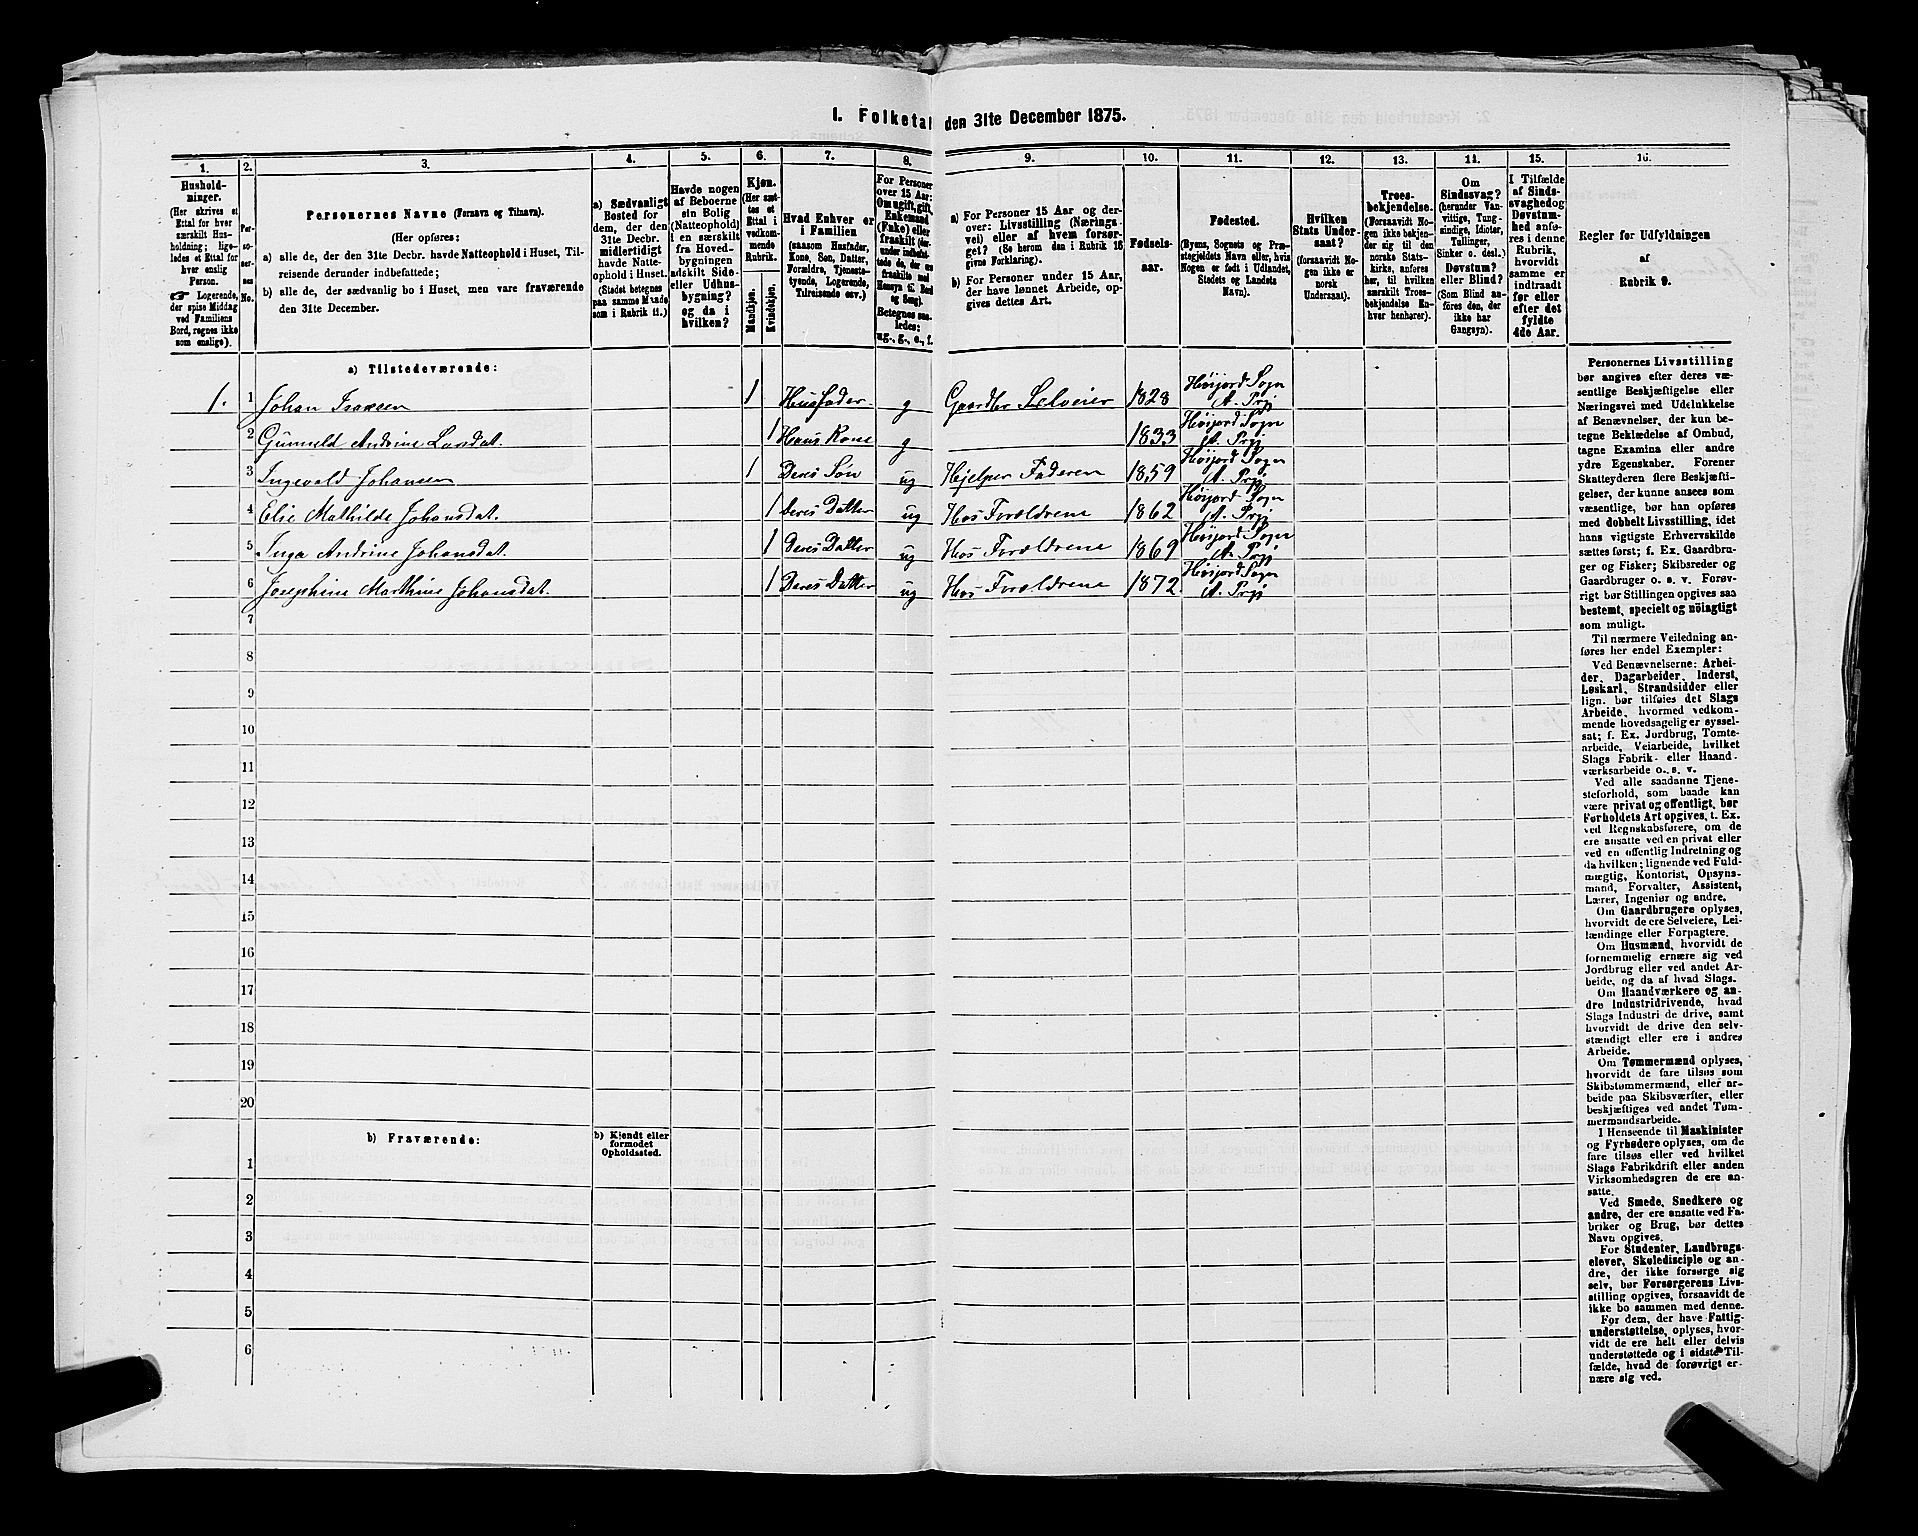 I. Folketal den 31te December 1875.
1. 2. 3. 4. 5. 6. 7. 8. 9. 10. 11. 12. 13. 14. 15. 16.
Hushold-
ninger.
(Her skrives et
Ettal for hver
særskilt Hus-
holdning; lige-
ledes et Ettal for
hver enslig
Person.
☞ Logerende,
der spise Middag
ved Familiens
Bord, regnes ikke
som enslige).
Per-
so-
ner-
nes
No.
Personernes Navne (Fornavn og Tilnavn).
(Her opføres:
a) alle de, der den 31te Decbr. havde Natteophold i Huset, Til-
reisende derunder indbefattede;
b) alle de, der sædvanlig bo i Huset, men vare fraværende
den 31te December.
a) Sædvanligt
Bosted for
dem, der den
31te Decbr.
midlertidigt
havde Natte-
ophold i Huset.
(Stedet betegnes
paa samme Maade
som i Rubrik 11.)
Havde nogen
af Beboerne
sin Bolig
(Natteophold)
i en særskilt
fra Hoved-
bygningen
adskilt Side-
eller Udhus-
bygning?
og da i
hvilken?
Kjøn.
(Her sæt-
tes et
Ettal i
vedkom-
mende
Rubrik.
Mandkjøn.
Kvindekjøn.
Hvad Enhver er
i Familien
(saasom Husfader,
Kone, Søn, Datter,
Forældre, Tjeneste-
tyende, Logerende,
Tilreisende osv.)
For Personer
over 15 Aar:
Om ugift, gift,
Enkemand
(Enke) eller
fraskilt
Betegnes saa-
ledes:
ug., g., e., f.
a) For Personer 15 Aar og der-
over: Livsstilling (Nærings-
vei) eller af hvem forsør-
get? (Se herom den i Rubrik 16
givne Forklaring).
b) For Personer under 15 Aar,
der have lønnet Arbeide, op-
gives dettes Art.
Fødsels-
aar.
Fødested.
(Byens, Sognets og Præ-
stegjeldets Navn eller, hvis
Nogen er født i Udlandet,
Stedets og Landets
Navn).
Hvilken
Stats Under-
saat?
(forsaavidt No-
gen ikke er
norsk
Undersaat).
Troes-
bekjendelse.
(Forsaavidt No-
gen ikke bekjen-
der sig til den
norske Stats-
kirke, anføres
her, til hvilken
særskilt Troes-
bekjendelse En-
hver henhører).
Om
Sindssvag?
(herunder Van-
vittige, Tung-
sindige, Idioter,
Tullinger,
Sinker o. desl.)
Døvstum?
eller Blind?
(Som Blind an-
føres den, der
ikke har
Gangsyn).
I Tilfælde
af Sinds-
svaghed og
Døvstum-
hed anfø-
res i denne
Rubrik,
hvorvidt
samme er
indtraadt
før eller
efter det
fyldte
4de Aar.
Regler for Udfyldningen
af
Rubrik 9.
a) Tilstedeværende:
1. 1 Johan Isaksen 1 Husfader g Gaardbr Selveier 1828 Høijord Sogn A. Prgj
2 Gunnild Andrine Larsdat. 1 Hans Kone g 1833 Høijord Sogn A. Prgj
3 Ingevald Johansen 1 Deres Søn ug Hjelper Faderen 1859 Høijord Sogn A. Prgj
4 Elise Mathilde Johansdat. 1 Deres Datter ug Hos Forældrene 1862 Høijord Sogn A. Prgj
5 Inga Andrine Johansdat. 1 Deres Datter ug Hos Forældrene 1869 Høijord Sogn A. Prgj
6 Josephine Marthine Johansdat. 1 Deres Datter ug Hos Forældrene 1872. Høijord Sogn A. Prgj
7
8
9
10
11
12
13
14
15
16
17
18
19
20
b) Fraværende:
b) Kjendt eller
formodet
Opholdssted.
1
2
3
4
5
6
Personernes Livsstilling
bør angives efter deres væ-
sentlige Beskjæftigelse eller
Næringsvei med Udelukkelse
af Benævnelser, der kun be-
tegne Beklædelse af Ombud,
tagne Examina eller andre
ydre Egenskaber. Forener
Skatteyderen flere Beskjæfti-
gelser, der kunne ansees som
væsentlige, bør han opføres
med dobbelt Livsstilling, idet
hans vigtigste Erhvervskilde
sættes først; f. Ex. Gaardbru-
ger og Fisker; Skibsreder og
Gaardbruger o. s. v. Forøv-
rigt bør Stillingen opgives saa
bestemt, specielt og nøiagtigt
som muligt.
Til nærmere Veiledning an-
føres her endel Exempler:
Ved Benævnelserne: Arbei-
der, Dagarbeider, Inderst,
Løskarl, Strandsidder eller
lign. bør tilføies det Slags
Arbeide, hvormed vedkom-
mende hovedsagelig er syssel-
sat; f. Ex. Jordbrug, Tomte-
arbeide, Veiarbeide, hvilket
Slags Fabrik- eller Haand-
værksarbeide o. s. v.
Ved alle saadanne Tjene-
steforhold, som baade kan
være privat og offentligt, bør
Forholdets Art opgives, t. Ex.
ved Regnskabsførere, om de
ere ansatte ved en privat eller
ved en offentlig Indretning og
da hvilken; lignende ved Fuld-
mægtig, Kontorist, Opsyns-
mand, Forvalter, Assistent,
Lærer, Ingeniør og andre.
Om Gaardbrugere oplyses,
hvorvidt de ere Selveiere, Lei-
lændinge eller Forpagtere.
Om Husmænd, hvorvidt de
fornemmelig ernære sig ved
Jordbrug eller ved andet Ar-
beide, og da af hvad Slags.
Om Haandværkere og an-
dre Industridrivende, hvad
Slags Industri de drive, samt
hvorvidt de drive den selv-
stændigt eller ere i andres
Arbeide.
Om Tømmermænd oplyses,
hvorvidt de fare tilsøs som
Skibstømmermænd, eller ar-
beide paa Skibsværfter, eller
beskjæftiges ved andet Tøm-
mermandsarbeide.
I Henseende til Maskinister
og Fyrbødere oplyses, om de
fare tilsøs eller ved hvilket
Slags Fabrikdrift eller anden
Virksomhedsgren de ere an-
satte.
Ved Smede, Snedkere og
andre, der ere ansatte ved Fa-
briker og Brug, bør dettes
Navn opgives.
For Studenter, Landbrugs-
elever, Skoledisciple og an-
dre, der ikke forsørge sig
selv, bør Forsørgerens Livs-
stilling opgives, forsaavidt de
ikke bo sammen med denne.
For dem, der have Fattig-
understøttelse, oplyses, hvor-
vidt de ere helt eller delvis
understøttede og i sidste Til-
fælde, hvad de forøvrigt er-
nære sig ved.